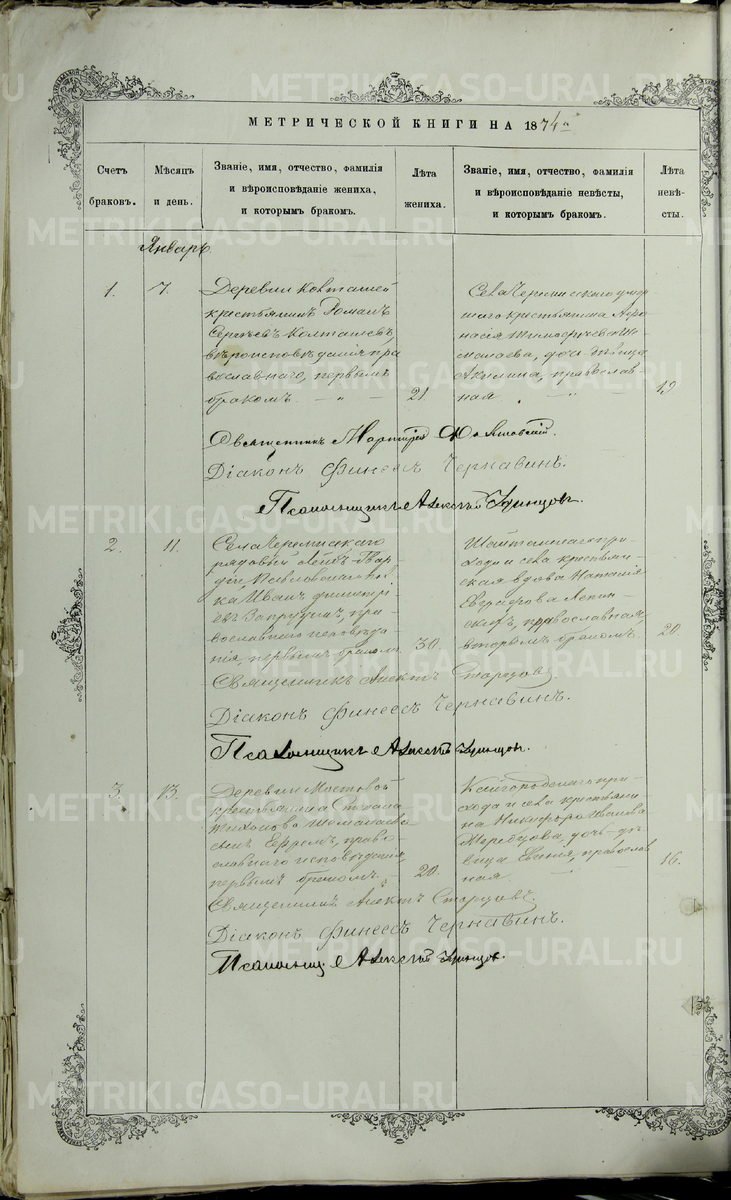 МЕТРИЧЕСКОЙ КНИГИ НА 1874
Счетъ браковъ.
Мѣсяцъ и день.
Званіе, имя, отчество, фамилія и вѣроисповѣданіе жениха, и которымъ бракомъ.
Лѣта жениха.
Званіе, имя, отчество, фамилія и вѣроисповѣданіе невѣсты, и которымъ бракомъ.
Лѣта невѣсты.
Январь
1.
7.
Деревни Колташей
крестьянинъ Романъ
Сергѣевъ Колташевъ,
вѣроисповѣданія пра
вославнаго, первымъ
бракомъ.
21
Села Черемисскаго
крестьянина Аѳа
насія
дочь дѣвица
Акилина, православ
ная
19
Священникъ
Діаконъ Финеесъ Чернавинъ.
Псаломщикъ Алексѣй
2.
11.
Села Черемисскаго
рядовый Лейбъ-Гвар
діи Павловскаго пол
ка Иванъ Димитрі
евъ Запрудинъ, пра
вославнаго исповѣда
нія, первымъ бракомъ
30
Шайтанскаго при
хода и села крестьян
ская вдова Наталія
православная,
вторымъ бракомъ
20
Священникъ Старцовъ
Діаконъ Финеесъ Чернавинъ.
Псаломщикъ Алексѣй
3.
13.
Деревни Мостовой
крестьянина Стефана
Тихонова
сынъ Ефремъ, право
славнаго исповѣданія,
первымъ бракомъ.
20.
прихода и села крестьяни
на Никифора Иванова
дочь дѣ
вица Евгенія, православ
ная
16.
Священникъ Старцовъ.
Діаконъ Финеесъ Чернавинъ.
Алексѣй
METRIKI.GASO-URAL.RU